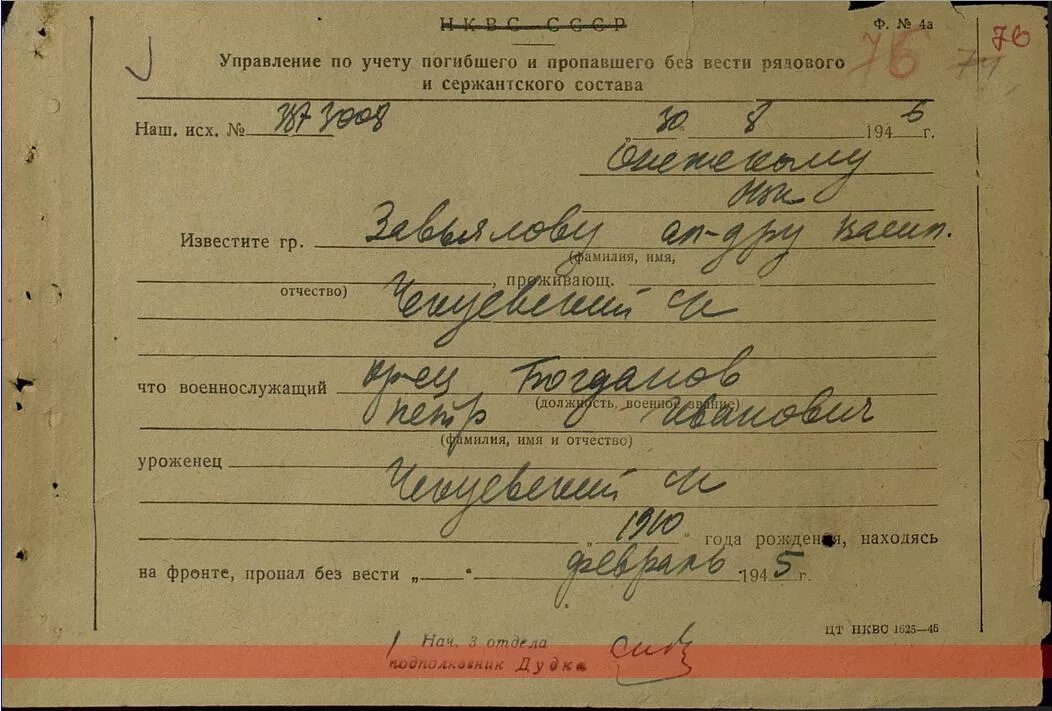 НКВС СССР
Ф. № 4а
76
76
Управление по учету погибшего и пропавшего без вести рядового
и сержантского состава
Наш. исх. № 873008
„30 8 1946 г.
Онежскому
Известите гр. Завьялову ал-дру Васил.
(фамилия, имя,
отчество)
, проживающ.
Чекуевский с/с
что военнослужащий кр-ец Богданов
(должность, военное звание)
Петр Иванович
(фамилия, имя и отчество)
уроженец
Чекуевский с/с
„1910 " года рождения, находясь
на фронте, пропал без вести „ " февраль 1945 г.
ЦТ НКВС 1625—46
Нач. 3 отдела
подполковник Дудка